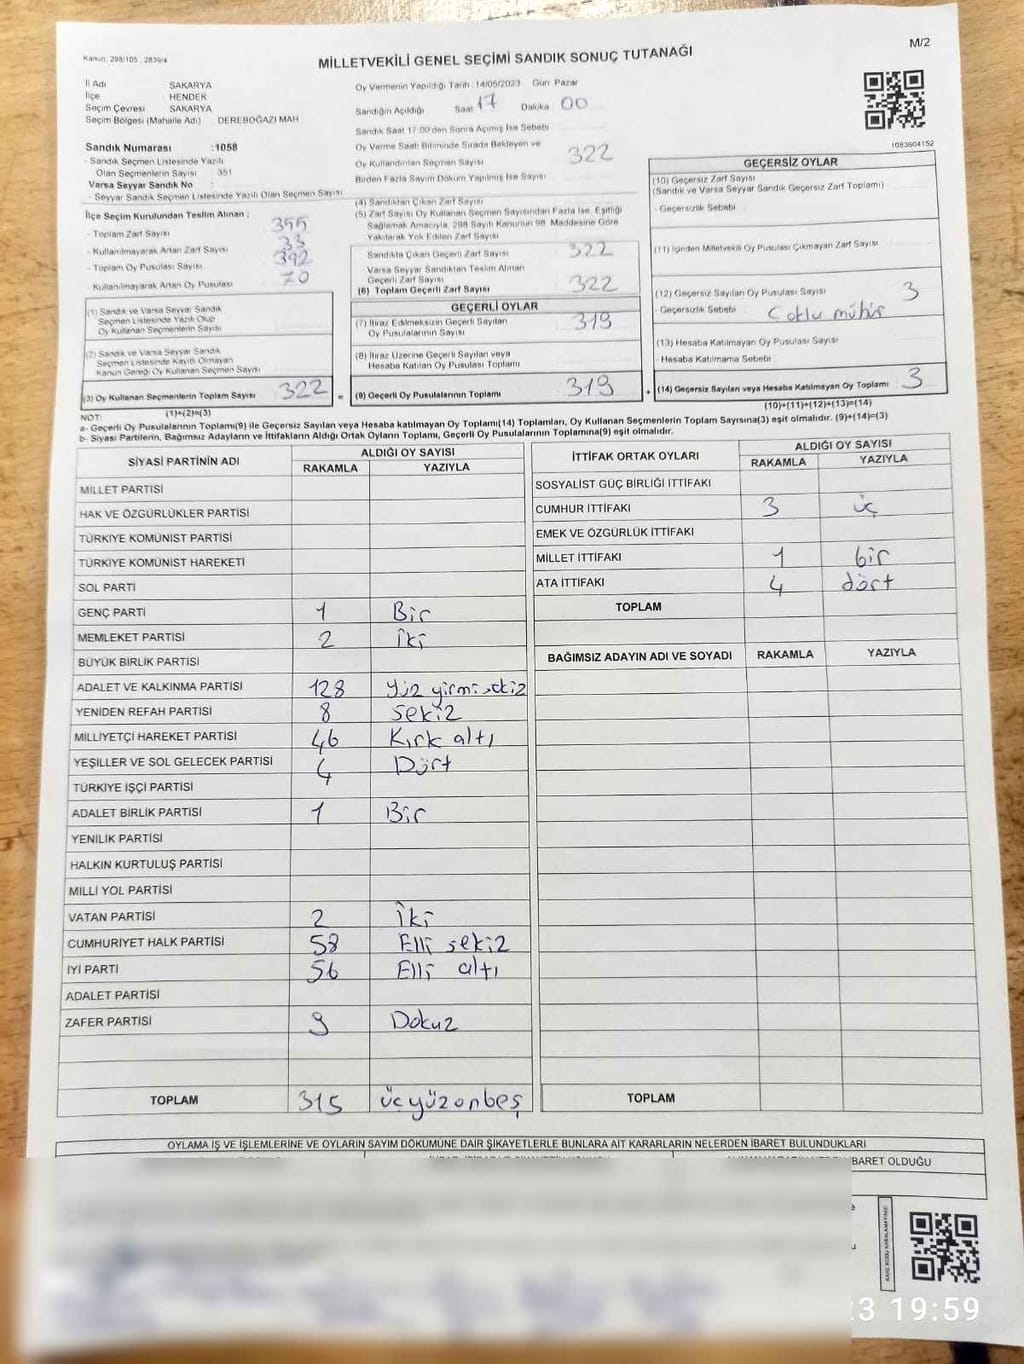 Kanun: 298/105 , 2839/4
MİLLETVEKİLİ GENEL SEÇİMİ SANDIK SONUÇ TUTANAĞI
M/2
İl Adı SAKARYA
İlçe HENDEK
Seçim Çevresi SAKARYA
Seçim Bölgesi (Mahalle Adı) DEREBOĞAZI MAH
Sandık Numarası :1058
- Sandık Seçmen Listesinde Yazılı
Olan Seçmenlerin Sayısı 351
Varsa Seyyar Sandık No :
- Seyyar Sandık Seçmen Listesinde Yazılı Olan Seçmen Sayısı
İlçe Seçim Kurulundan Teslim Alınan :
- Toplam Zarf Sayısı 355
- Kullanılmayarak Artan Zarf Sayısı 33
- Toplam Oy Pusulası Sayısı 392
- Kullanılmayarak Artan Oy Pusulası 70
(1) Sandık ve Varsa Seyyar Sandık
Seçmen Listesinde Yazılı Olup
Oy Kullanan Seçmenlerin Sayısı
(2) Sandık ve Varsa Seyyar Sandık
Seçmen Listesinde Kayıtlı Olmayan
Kanun Gereği Oy Kullanan Seçmen Sayısı
(3) Oy Kullanan Seçmenlerin Toplam Sayısı 322 =
(1)+(2)=(3)
Oy Vermenin Yapıldığı Tarih :14/05/2023 Gün Pazar
Sandığın Açıldığı Saat 17 Dakika 00
Sandık Saat 17:00'den Sonra Açılmış İse Sebebi
Oy Verme Saati Bitiminde Sırada Bekleyen ve
Oy Kullandırılan Seçmen Sayısı 322
Birden Fazla Sayım Döküm Yapılmış İse Sayısı
(4) Sandıktan Çıkan Zarf Sayısı
(5) Zarf Sayısı Oy Kullanan Seçmen Sayısından Fazla İse, Eşitliği
Sağlamak Amacıyla, 298 Sayılı Kanunun 98. Maddesine Göre
Yakılarak Yok Edilen Zarf Sayısı
Sandıkta Çıkan Geçerli Zarf Sayısı 322
Varsa Seyyar Sandıktan Teslim Alınan
Geçerli Zarf Sayısı
(6) Toplam Geçerli Zarf Sayısı 322
GEÇERLİ OYLAR
(7) İtiraz Edilmeksizin Geçerli Sayılan
Oy Pusulalarının Sayısı 319
(8) İtiraz Üzerine Geçerli Sayılan veya
Hesaba Katılan Oy Pusulası Toplamı
(9) Geçerli Oy Pusulalarının Toplamı 319 +
1083604152
GEÇERSİZ OYLAR
(10) Geçersiz Zarf Sayısı
(Sandık ve Varsa Seyyar Sandık Geçersiz Zarf Toplamı)
- Geçersizlik Sebebi
(11) İçinden Milletvekili Oy Pusulası Çıkmayan Zarf Sayısı
(12) Geçersiz Sayılan Oy Pusulası Sayısı 3
- Geçersizlik Sebebi Çoklu mühür
(13) Hesaba Katılmayan Oy Pusulası Sayısı
- Hesaba Katılmama Sebebi
(14) Geçersiz Sayılan veya Hesaba Katılmayan Oy Toplamı 3
(10)+(11)+(12)+(13)=(14)
NOT:
a- Geçerli Oy Pusulalarının Toplamı(9) ile Geçersiz Sayılan veya Hesaba katılmayan Oy Toplamı(14) Toplamları, Oy Kullanan Seçmenlerin Toplam Sayısına(3) eşit olmalıdır. (9)+(14)=(3)
b- Siyasi Partilerin, Bağımsız Adayların ve İttifakların Aldığı Ortak Oyların Toplamı, Geçerli Oy Pusulalarının Toplamına(9) eşit olmalıdır.
SİYASİ PARTİNİN ADI ALDIĞI OY SAYISI
RAKAMLA YAZIYLA
MİLLET PARTİSİ
HAK VE ÖZGÜRLÜKLER PARTİSİ
TÜRKİYE KOMÜNİST PARTİSİ
TÜRKİYE KOMÜNİST HAREKETİ
SOL PARTİ
GENÇ PARTİ 1 Bir
MEMLEKET PARTİSİ 2 İki
BÜYÜK BİRLİK PARTİSİ
ADALET VE KALKINMA PARTİSİ 128 Yüz yirmi sekiz
YENİDEN REFAH PARTİSİ 8 Sekiz
MİLLİYETÇİ HAREKET PARTİSİ 46 Kırk altı
YEŞİLLER VE SOL GELECEK PARTİSİ 4 Dört
TÜRKİYE İŞÇİ PARTİSİ
ADALET BİRLİK PARTİSİ 1 Bir
YENİLİK PARTİSİ
HALKIN KURTULUŞ PARTİSİ
MİLLİ YOL PARTİSİ
VATAN PARTİSİ 2 İki
CUMHURİYET HALK PARTİSİ 58 Elli sekiz
İYİ PARTİ 56 Elli altı
ADALET PARTİSİ
ZAFER PARTİSİ 9 Dokuz
TOPLAM 315 üçyüzonbeş
İTTİFAK ORTAK OYLARI ALDIĞI OY SAYISI
RAKAMLA YAZIYLA
SOSYALİST GÜÇ BİRLİĞİ İTTİFAKI
CUMHUR İTTİFAKI 3 üç
EMEK VE ÖZGÜRLÜK İTTİFAKI
MİLLET İTTİFAKI 1 bir
ATA İTTİFAKI 4 dört
TOPLAM
BAĞIMSIZ ADAYIN ADI VE SOYADI RAKAMLA YAZIYLA
TOPLAM
OYLAMA İŞ VE İŞLEMLERİNE VE OYLARIN SAYIM DÖKÜMÜNE DAİR ŞİKAYETLERLE BUNLARA AİT KARARLARIN NELERDEN İBARET BULUNDUKLARI
İBARET OLDUĞU
:3 19:59